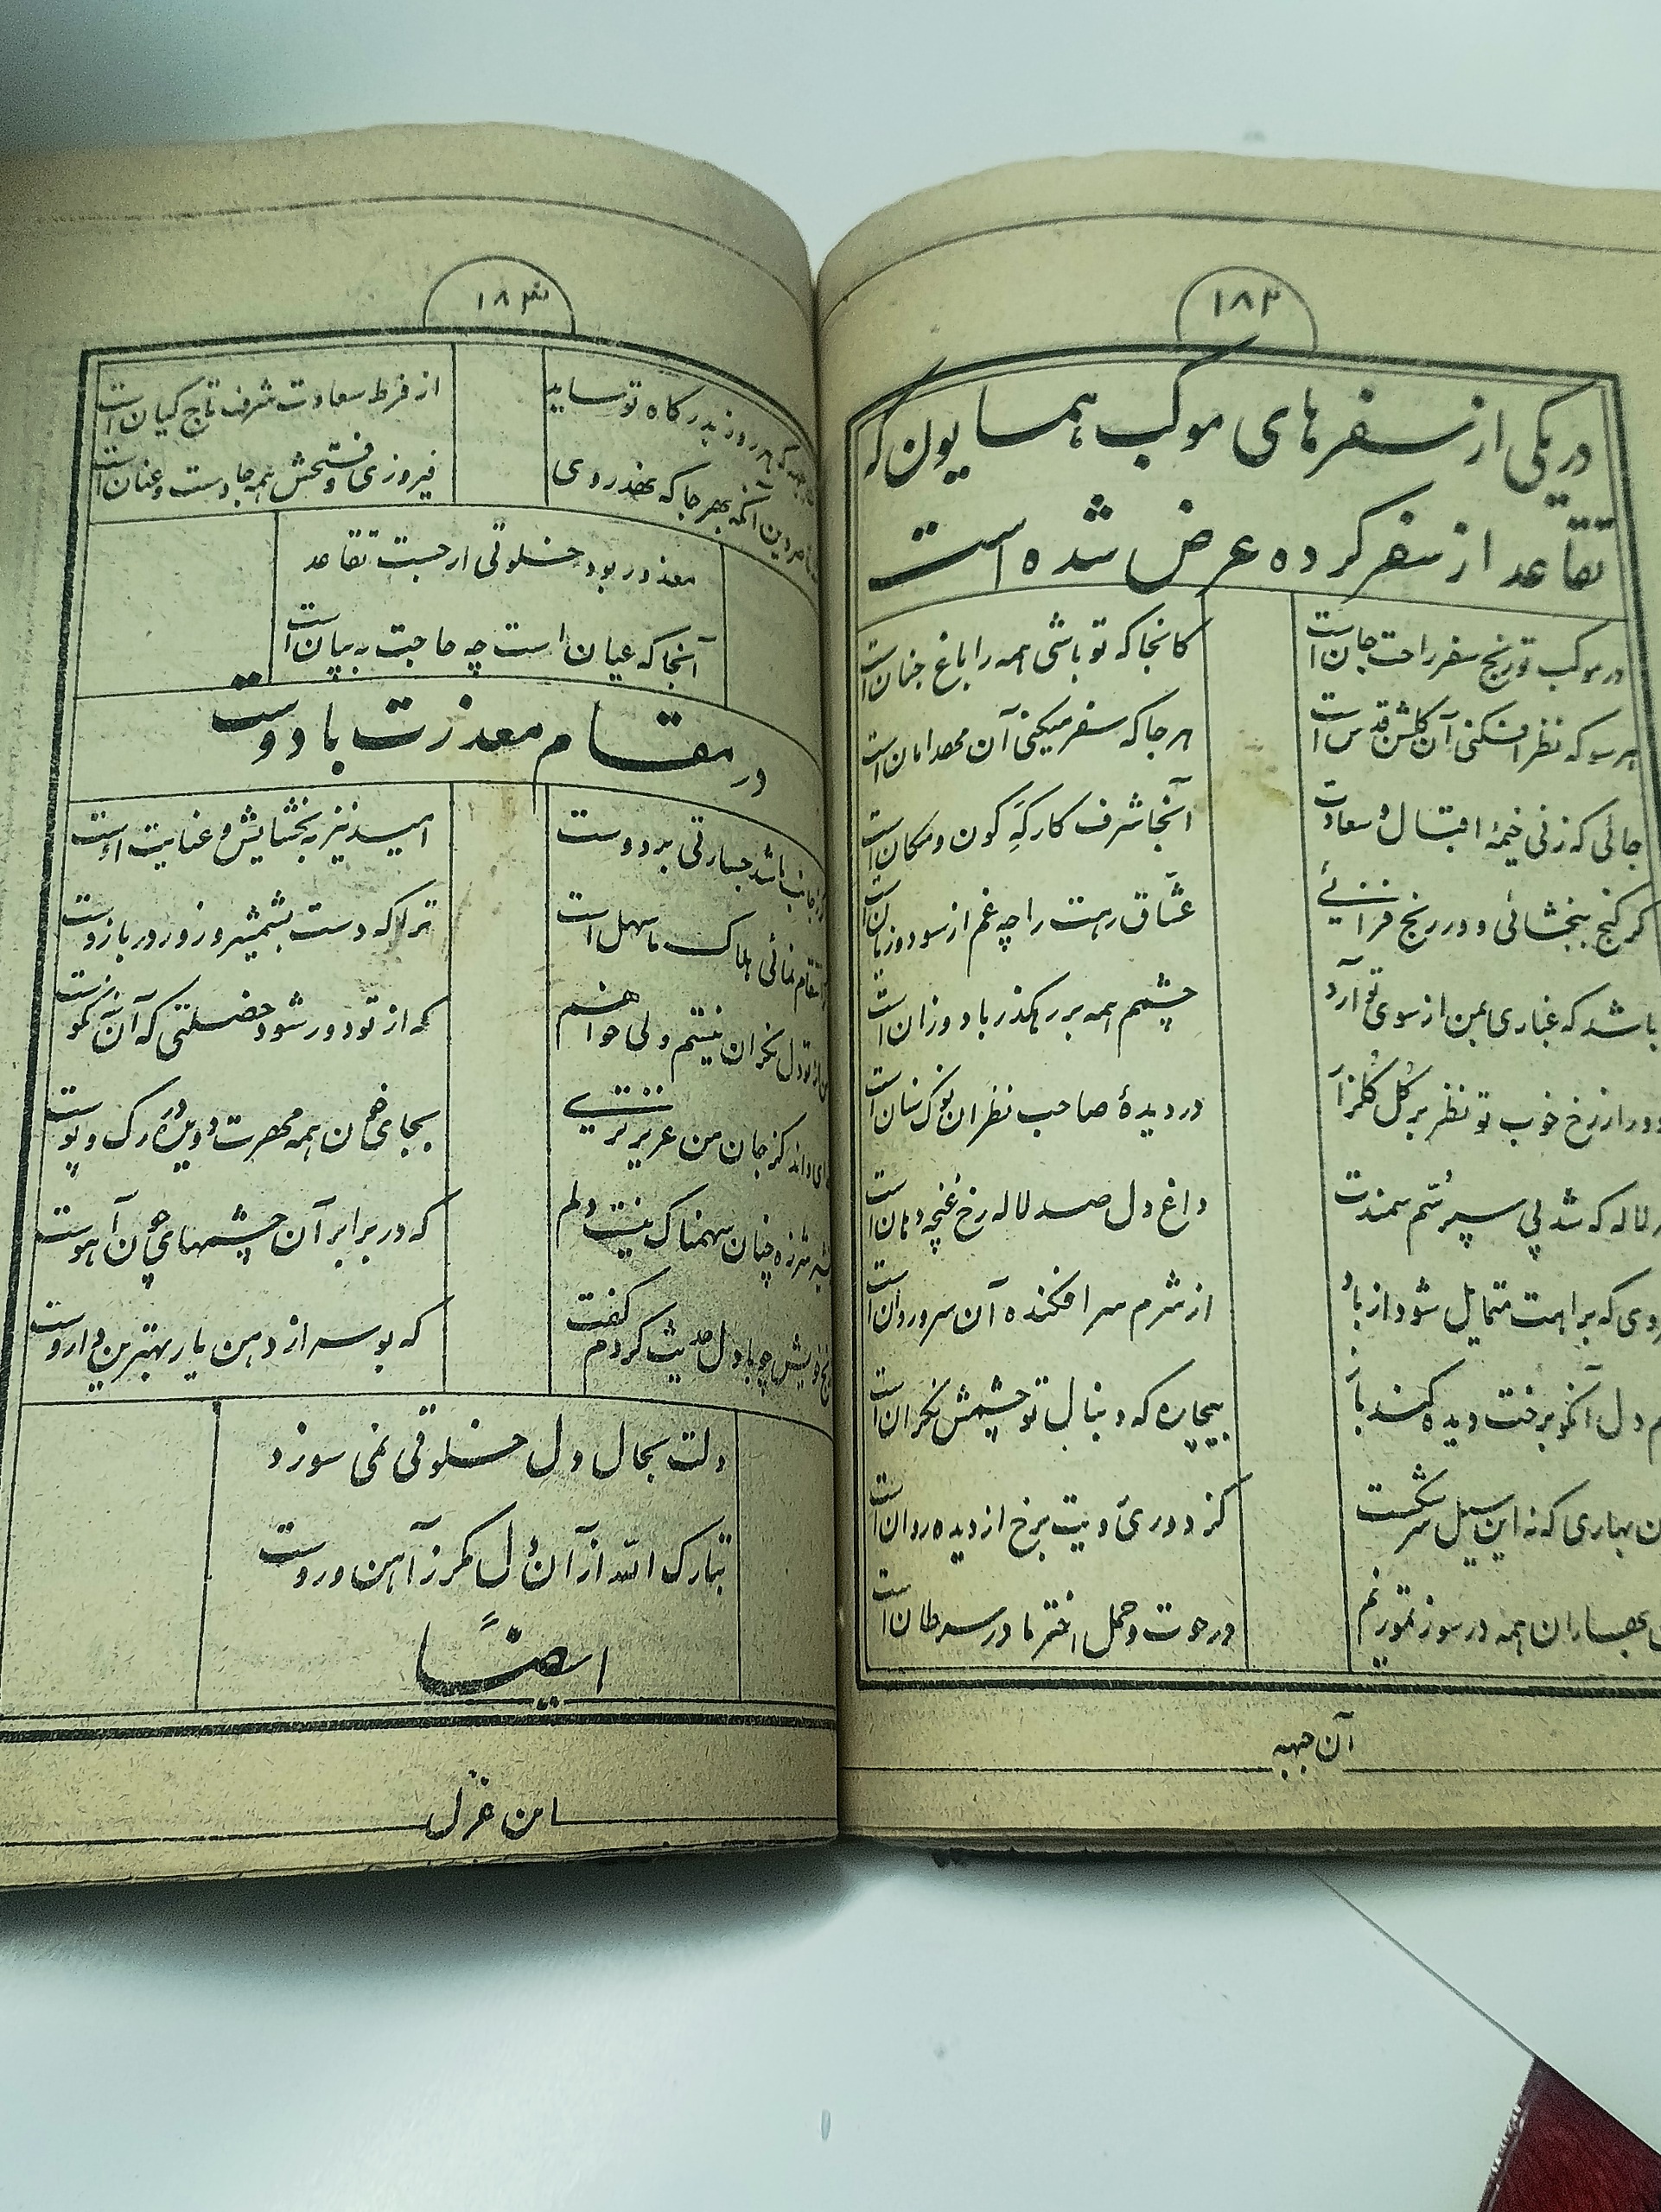 ۱۸۲
در یکی از سفرهای موکب همایون که
تقاعد از سفر کرده عرض شده است
در موکب تو رنج سفر راحت جان است کانجا که تو باشی همه را باغ جنان است
هر سو که نظر افکنی آن گلشن قدس است هر جا که سفر میکنی آن مهد امان است
جائی که زنی خیمهٔ اقبال و سعادت آنجا شرف کارگه کون و مکان است
گر گنج ببخشائی و در رنج فزائی عشاق رهت را چه غم از سود و زیان است
باشد که غباری بمن از سوی تو آرد چشمم همه بر رهگذر باد وزان است
دور از رخ خوب تو نظر بر گل گلزار در دیدهٔ صاحب نظران نوک سنان است
لاله که شد پی سپر سم سمندت داغ دل صد لاله رخ غنچه دهان است
که براهت متمایل شود از باد از شرم سرافکنده آن سرو روان است
دل آنکو برخت دیده کند باز بیچاره که دنبال تو چشمش نگران است
بهاری که نه این سیل سرشکست کز دوریٔ رویت برخ از دیده روان است
بهاران همه در سوز تموزیم در حوت و حمل اختر ما در سرطان است
آن جبهه
۱۸۳
که هر روز بدرگاه تو ساید از فرط سعادت شرف تاج کیان است
آنکه بهر جا که نهد روی فیروزی و فتحش همه جا دست و عنان است
معذور بود خلوتی ار جست تقاعد
آنجا که عیان است چه حاجت به بیان است
در مقام معذرت با دوست
باشد جسارتی بر دوست امید نیز به بخشایش و عنایت اوست
انتقام نمائی هلاک ما سهل است ترا که دست بشمشیر و زور در بازوست
از تو دل نگران نیستم ولی خواهم که از تو دور شود خصلتی که آن نه نکوست
کز جان من عزیزتری بجای خون همه مهرت دویده در رگ و پوست
شیر شرزه چنان سهمناک نیست دلم که در برابر آن چشمهای چون آهوست
خویش چو با دل حدیث کردم گفت که بوسه از دهن یار بهترین داروست
دلت بحال دل خلوتی نمی سوزد
تبارک الله از آن دل مگر ز آهن و روست
ایضاً
امن غزل